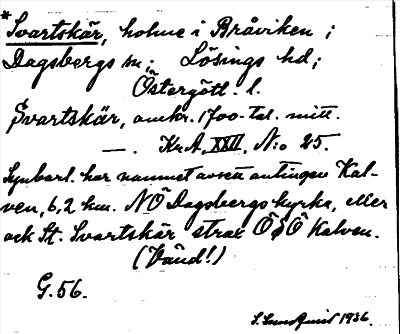 *Svartskär, holme i Bråviken;
Dagsbergs sn; Lösings hd;
Östergötl. l.
Svartskär, omkr. 1700-tal. mitt.
—. Kr.A. XXII, N:o 25.
Synbarl. har namnet avsett antingen Kal-
ven, 6,2 km. NÖ Dagsbergs kyrka, eller
ock St. Svartskär strax ÖSÖ Kalven.
(Vänd!)
G. 56.
1936.